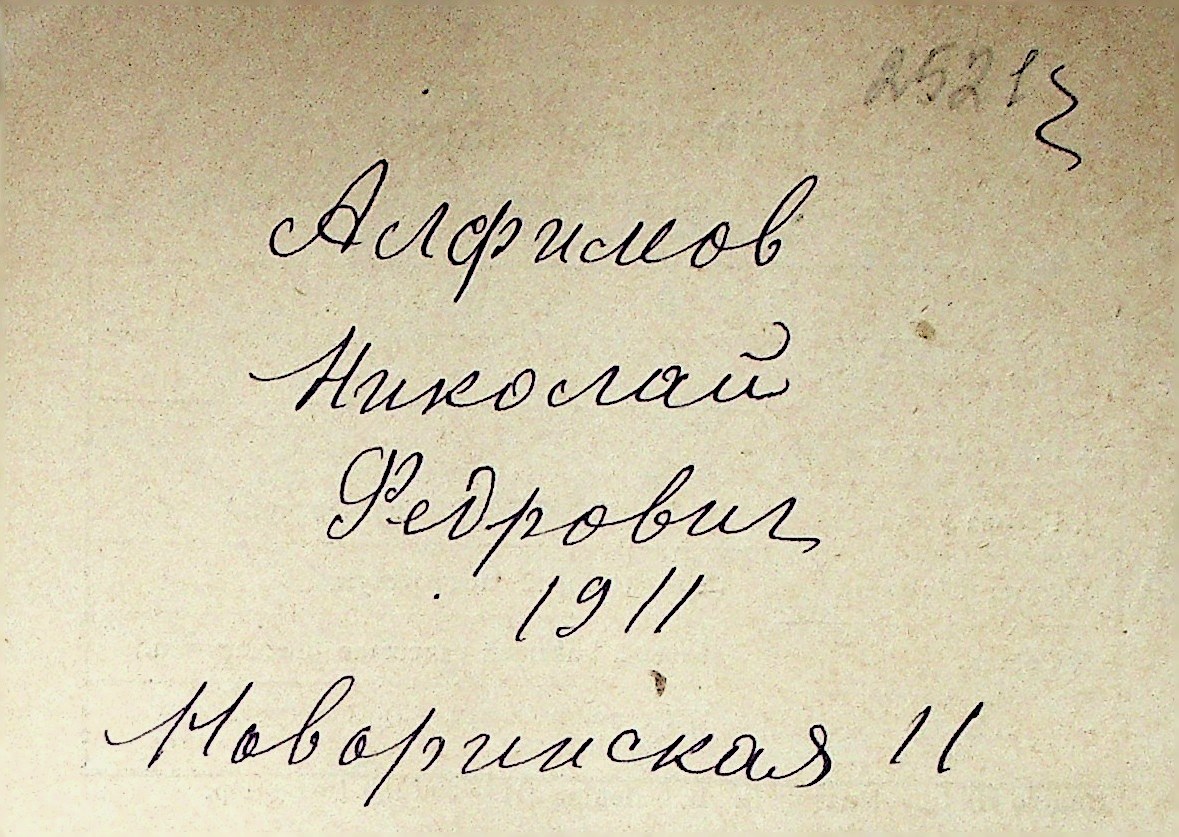 2521
Алфимов
Николай
Федрович
1911
Новоринская 11